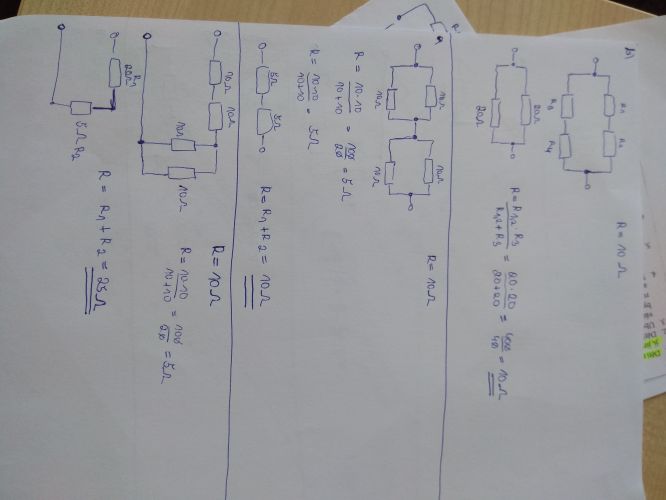 b)
R = 10 Ω
R1 R2
R3 R4
20Ω
20Ω
R = R1,2 · R3 / R1,2 + R3 = 20 · 20 / 20 + 20 = 400 / 40 = 10 Ω
R = 10 Ω
10Ω 10Ω
10Ω 10Ω
R = 10 · 10 / 10 + 10 = 100 / 20 = 5 Ω
R = 10 · 10 / 10 + 10 = 5 Ω
5Ω 5Ω
R = R1 + R2 = 10 Ω
R = 10 Ω
10Ω 10Ω
10Ω 10Ω
R = 10 · 10 / 10 + 10 = 100 / 20 = 5 Ω
R1
20Ω
5Ω R2
R = R1 + R2 = 25 Ω